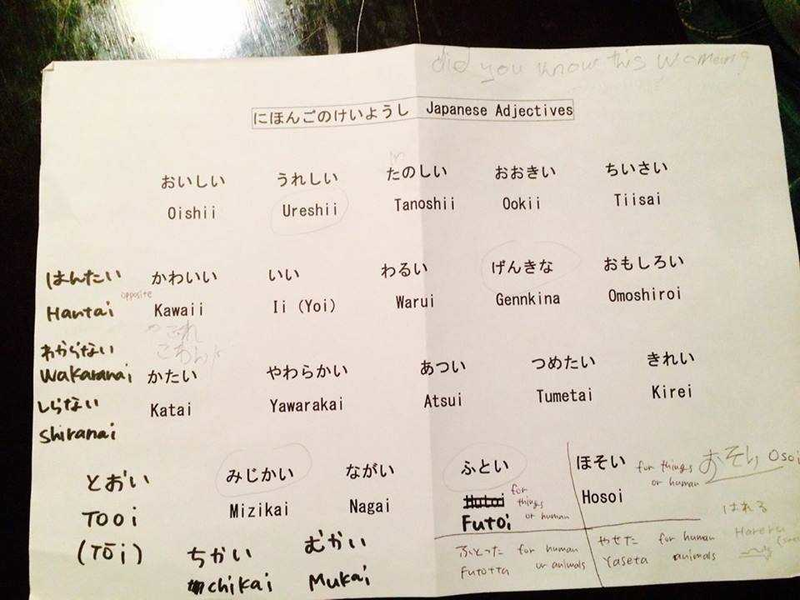 did you know this womeing
にほんごのけいようし Japanese Adjectives
おいしい うれしい たのしい おおきい ちいさい
Oishii Ureshii Tanoshii Ookii Tiisai
はんたい かわいい いい わるい げんきな おもしろい
Hantai opposite Kawaii Ii (Yoi) Warui Gennkina Omoshiroi
わからない
Wakaranai かたい やわらかい あつい つめたい きれい
しらない Katai Yawarakai Atsui Tumetai Kirei
Shiranai
とおい みじかい ながい ふとい ほそい for things or human おそい Osoi
Tooi Mizikai Nagai Futoi for things or human Hosoi
(Tōi) はれる
ちかい むかい ふとった for human or animals やせた for human animals Hareru
chikai Mukai Futotta Yaseta